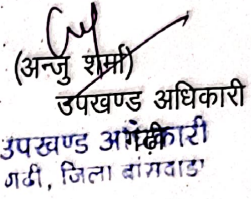 (अन्जु शर्मा)
उपखण्ड अधिकारी
उपखण्ड अधिकारी
गढी, जिला बांसवाडा